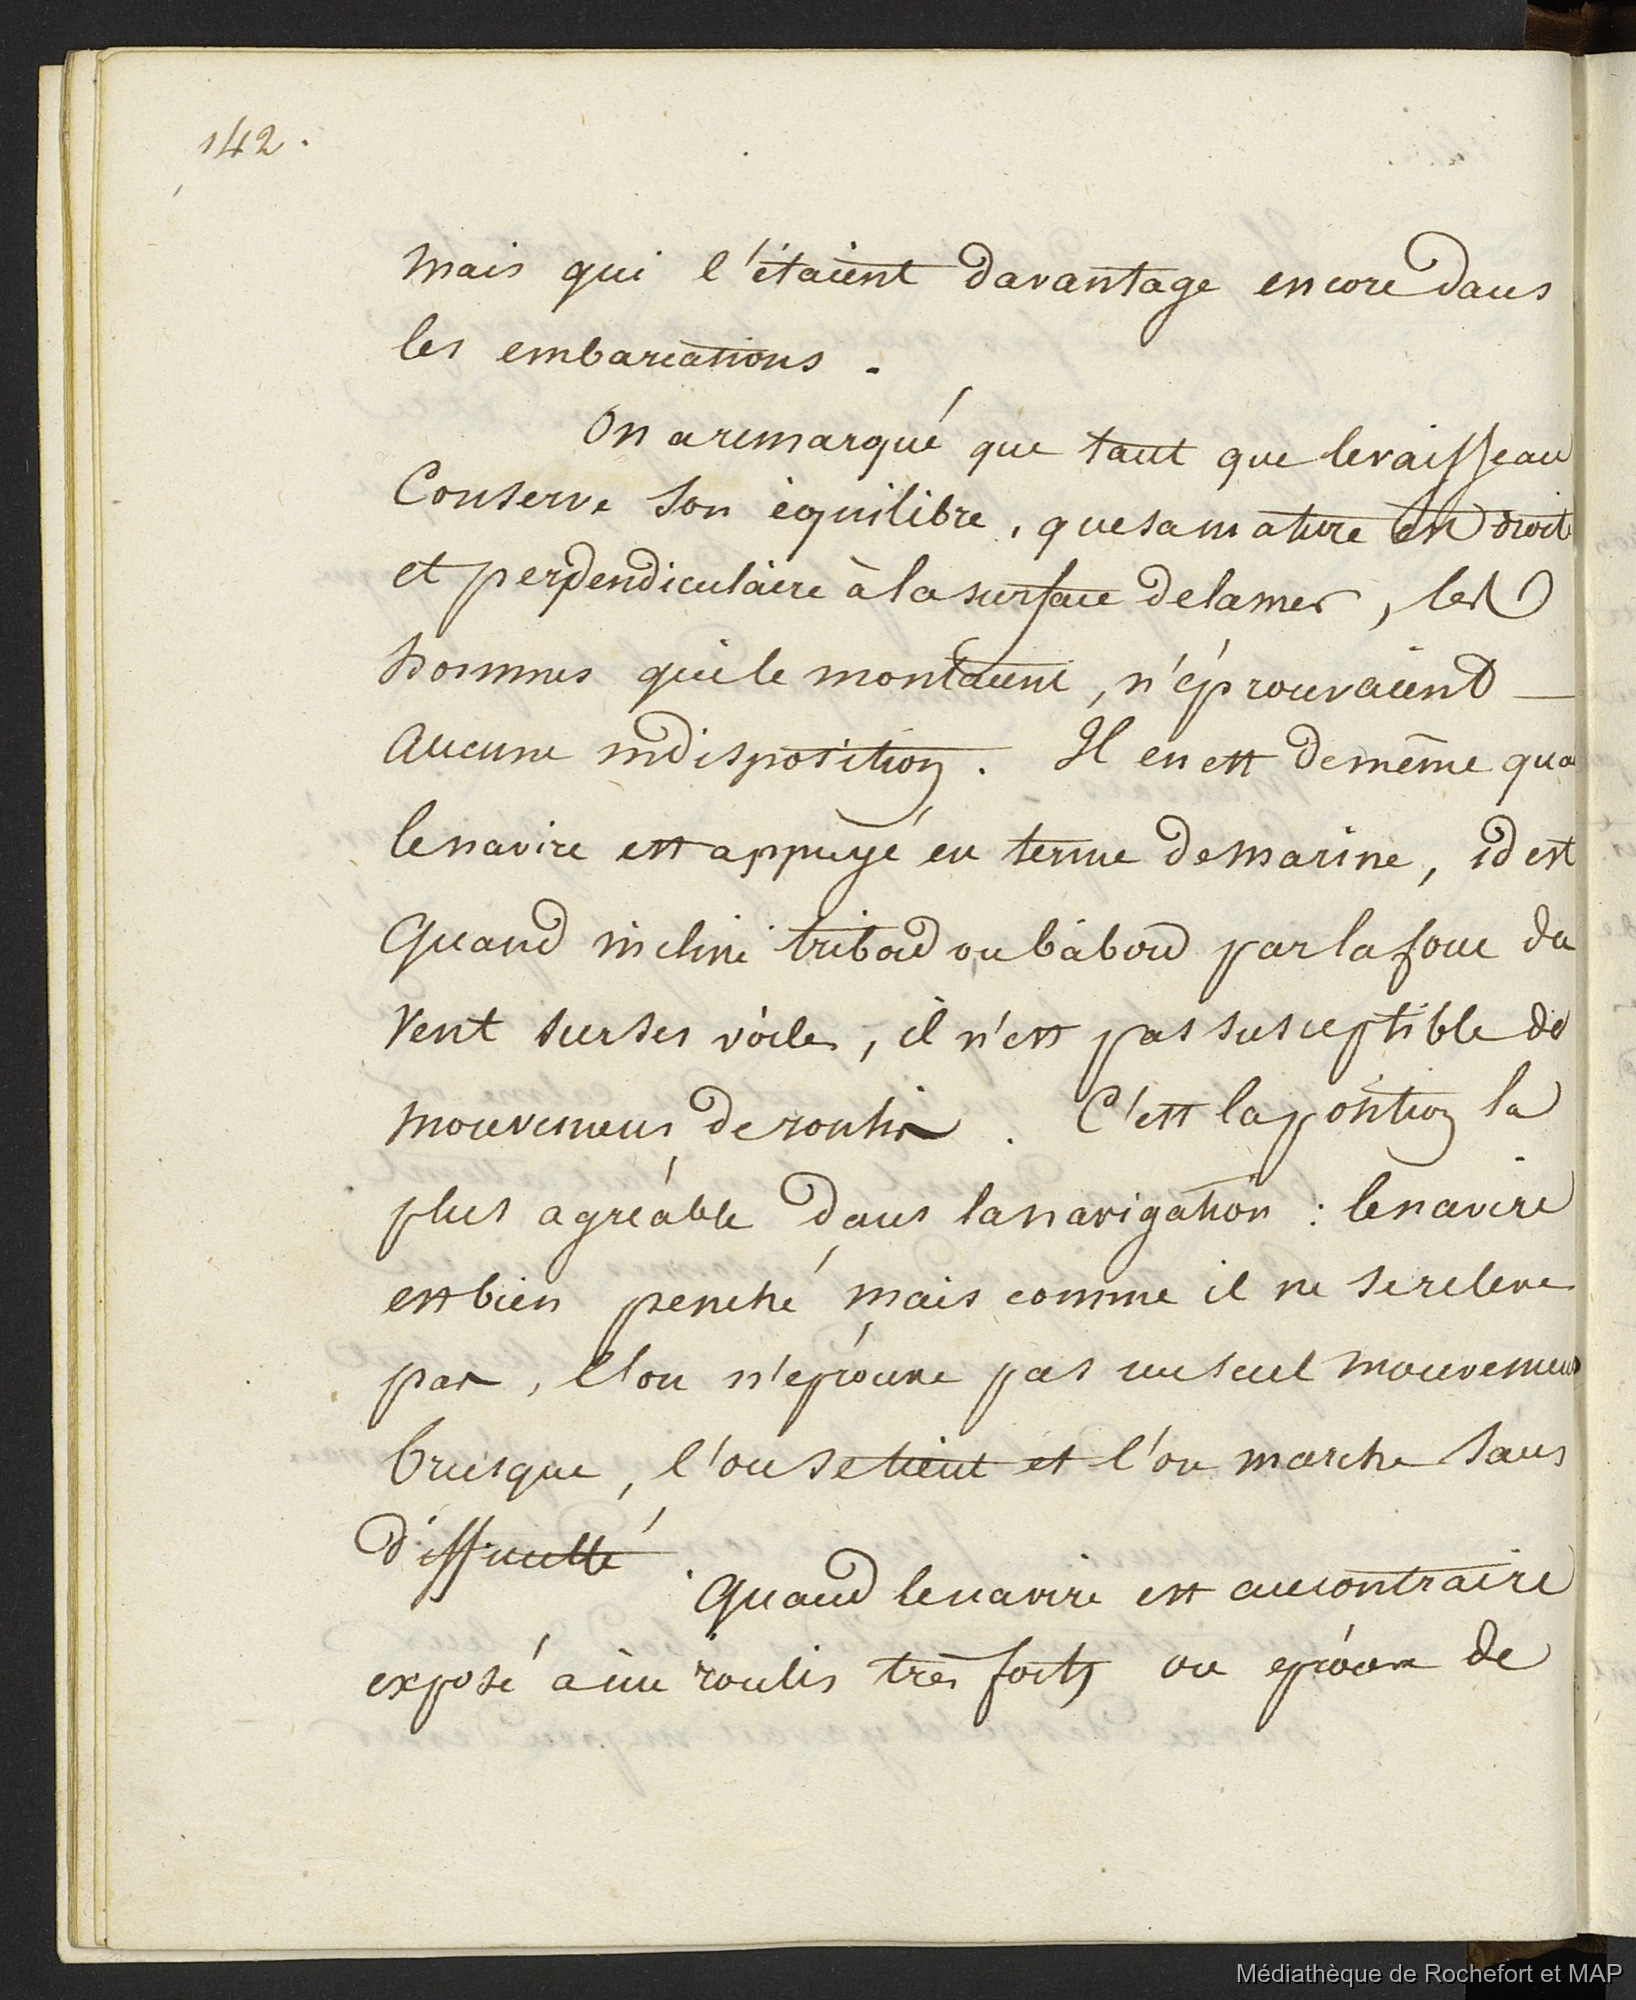 142.
mais qui l'étaient davantage encore dans
les embarcations.
On a remarqué que tant que le vaisseau
Conserve son équilibre, que sa mature est droite
et perpendiculaire à la surface de la mer, les
hommes qui le montaient, n'éprouvaient —
aucune indisposition. Il en est de même qua
le navire est appuyé en terme de marine, id est
quand incliné tribord ou bâbord par la force du
vent sur ses voiles, il n'est pas susceptible de
mouvemens de roulis. C'est la position la
plus agréable dans la navigation : le navire
est bien penché mais comme il ne se releve
pas, l'on n'éprouve pas un seul mouvement
brusque, l'on se tient et l'on marche sans
difficulté. Quand le navire est au contraire
exposé à un roulis très fort, on éprouve de
Médiathèque de Rochefort et MAP